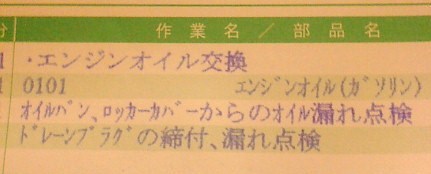 分 作業名／部品名
1 ・エンジンオイル交換
1 0101 ｴﾝｼﾞﾝｵｲﾙ(ｶﾞｿﾘﾝ)
ｵｲﾙﾊﾟﾝ、ﾛｯｶｰｶﾊﾞｰからのｵｲﾙ漏れ点検
ﾄﾞﾚｰﾝﾌﾟﾗｸﾞの締付、漏れ点検